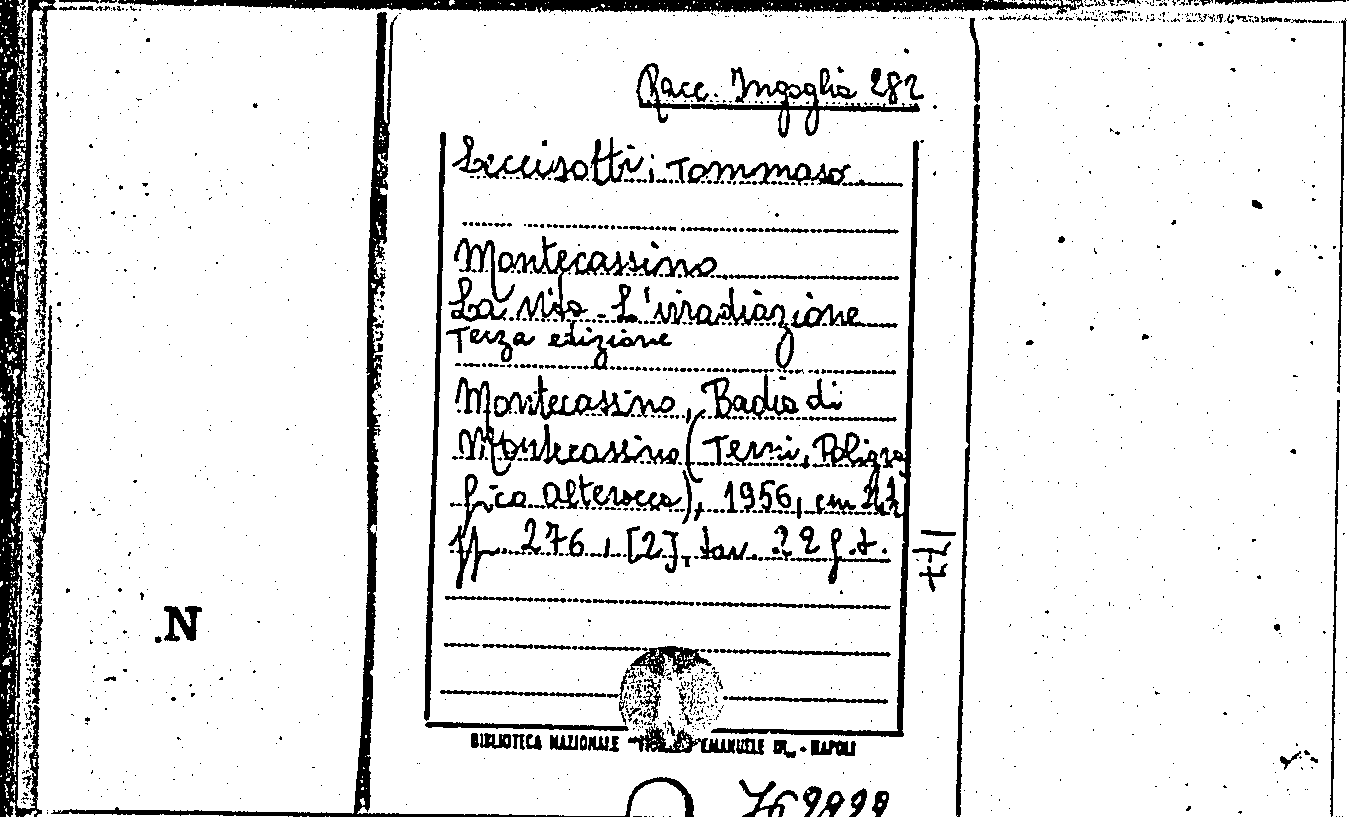 Racc. Ingoglia 282
Leccisotti, Tommaso.
Montecassino
La vita - L'irradiazione
Terza edizione
Montecassino, Badia di
Montecassino (Terni, Poligra
fico Alterocca), 1956, cm
pp. 276, [2], tav. 22 f.t.
.N
BIBLIOTECA NAZIONALE EMANUELE III - NAPOLI